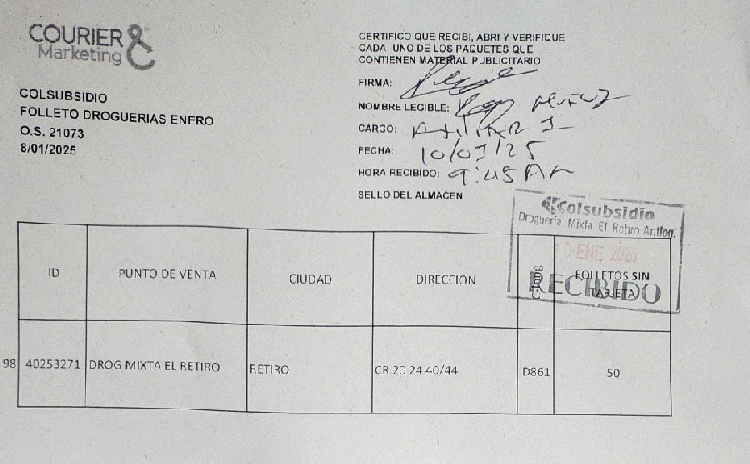 COURIER &
Marketing
CERTIFICO QUE RECIBI, ABRI Y VERIFIQUE
CADA UNO DE LOS PAQUETES QUE
CONTIENEN MATERIAL PUBLICITARIO
FIRMA:
NOMBRE LEGIBLE: Muñoz
CARGO:
FECHA: 10/01/25
HORA RECIBIDO: 9:45 AM
SELLO DEL ALMACEN
COLSUBSIDIO
FOLLETO DROGUERIAS ENFRO
O.S. 21073
8/01/2025
Colsubsidio
Droguería Mixta El Retiro Antioq.
ENE
RECIBIDO
ID PUNTO DE VENTA CIUDAD DIRECCION FOLLETOS SIN
TARJETA
98 40253271 DROG MIXTA EL RETIRO RETIRO CR 20 24 40/44 D861 50